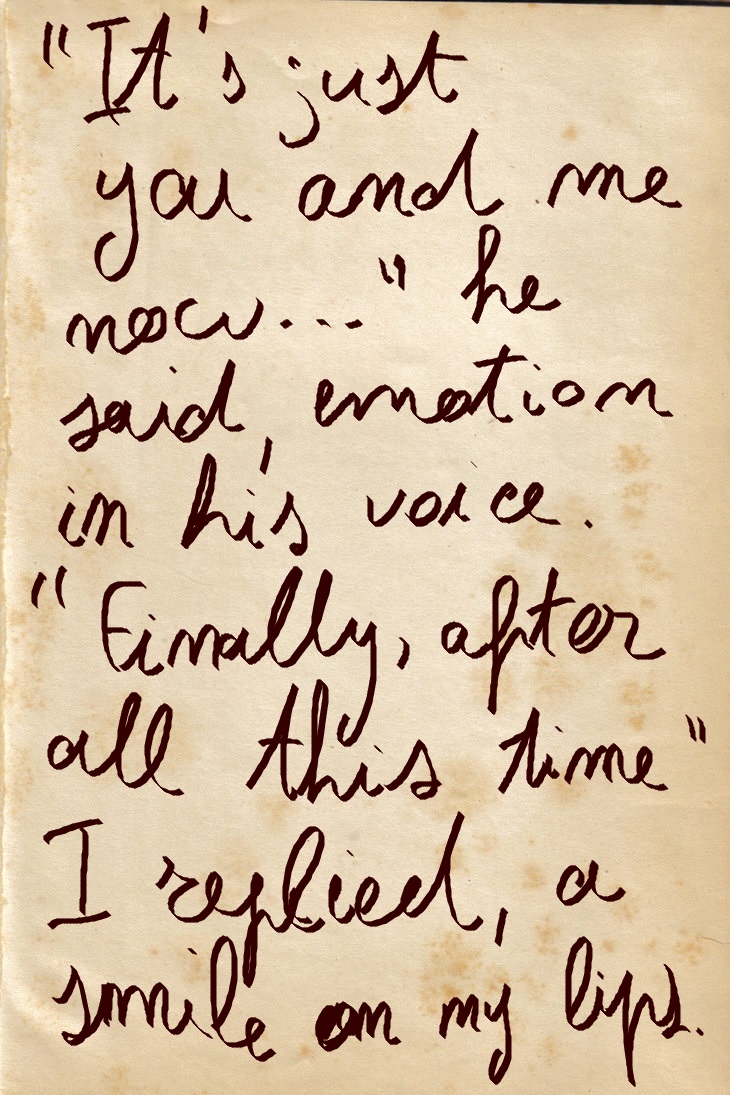 "It's just
you and me
now..." he
said, emotion
in his voice.
"Finally, after
all this time"
I replied, a
smile on my lips.